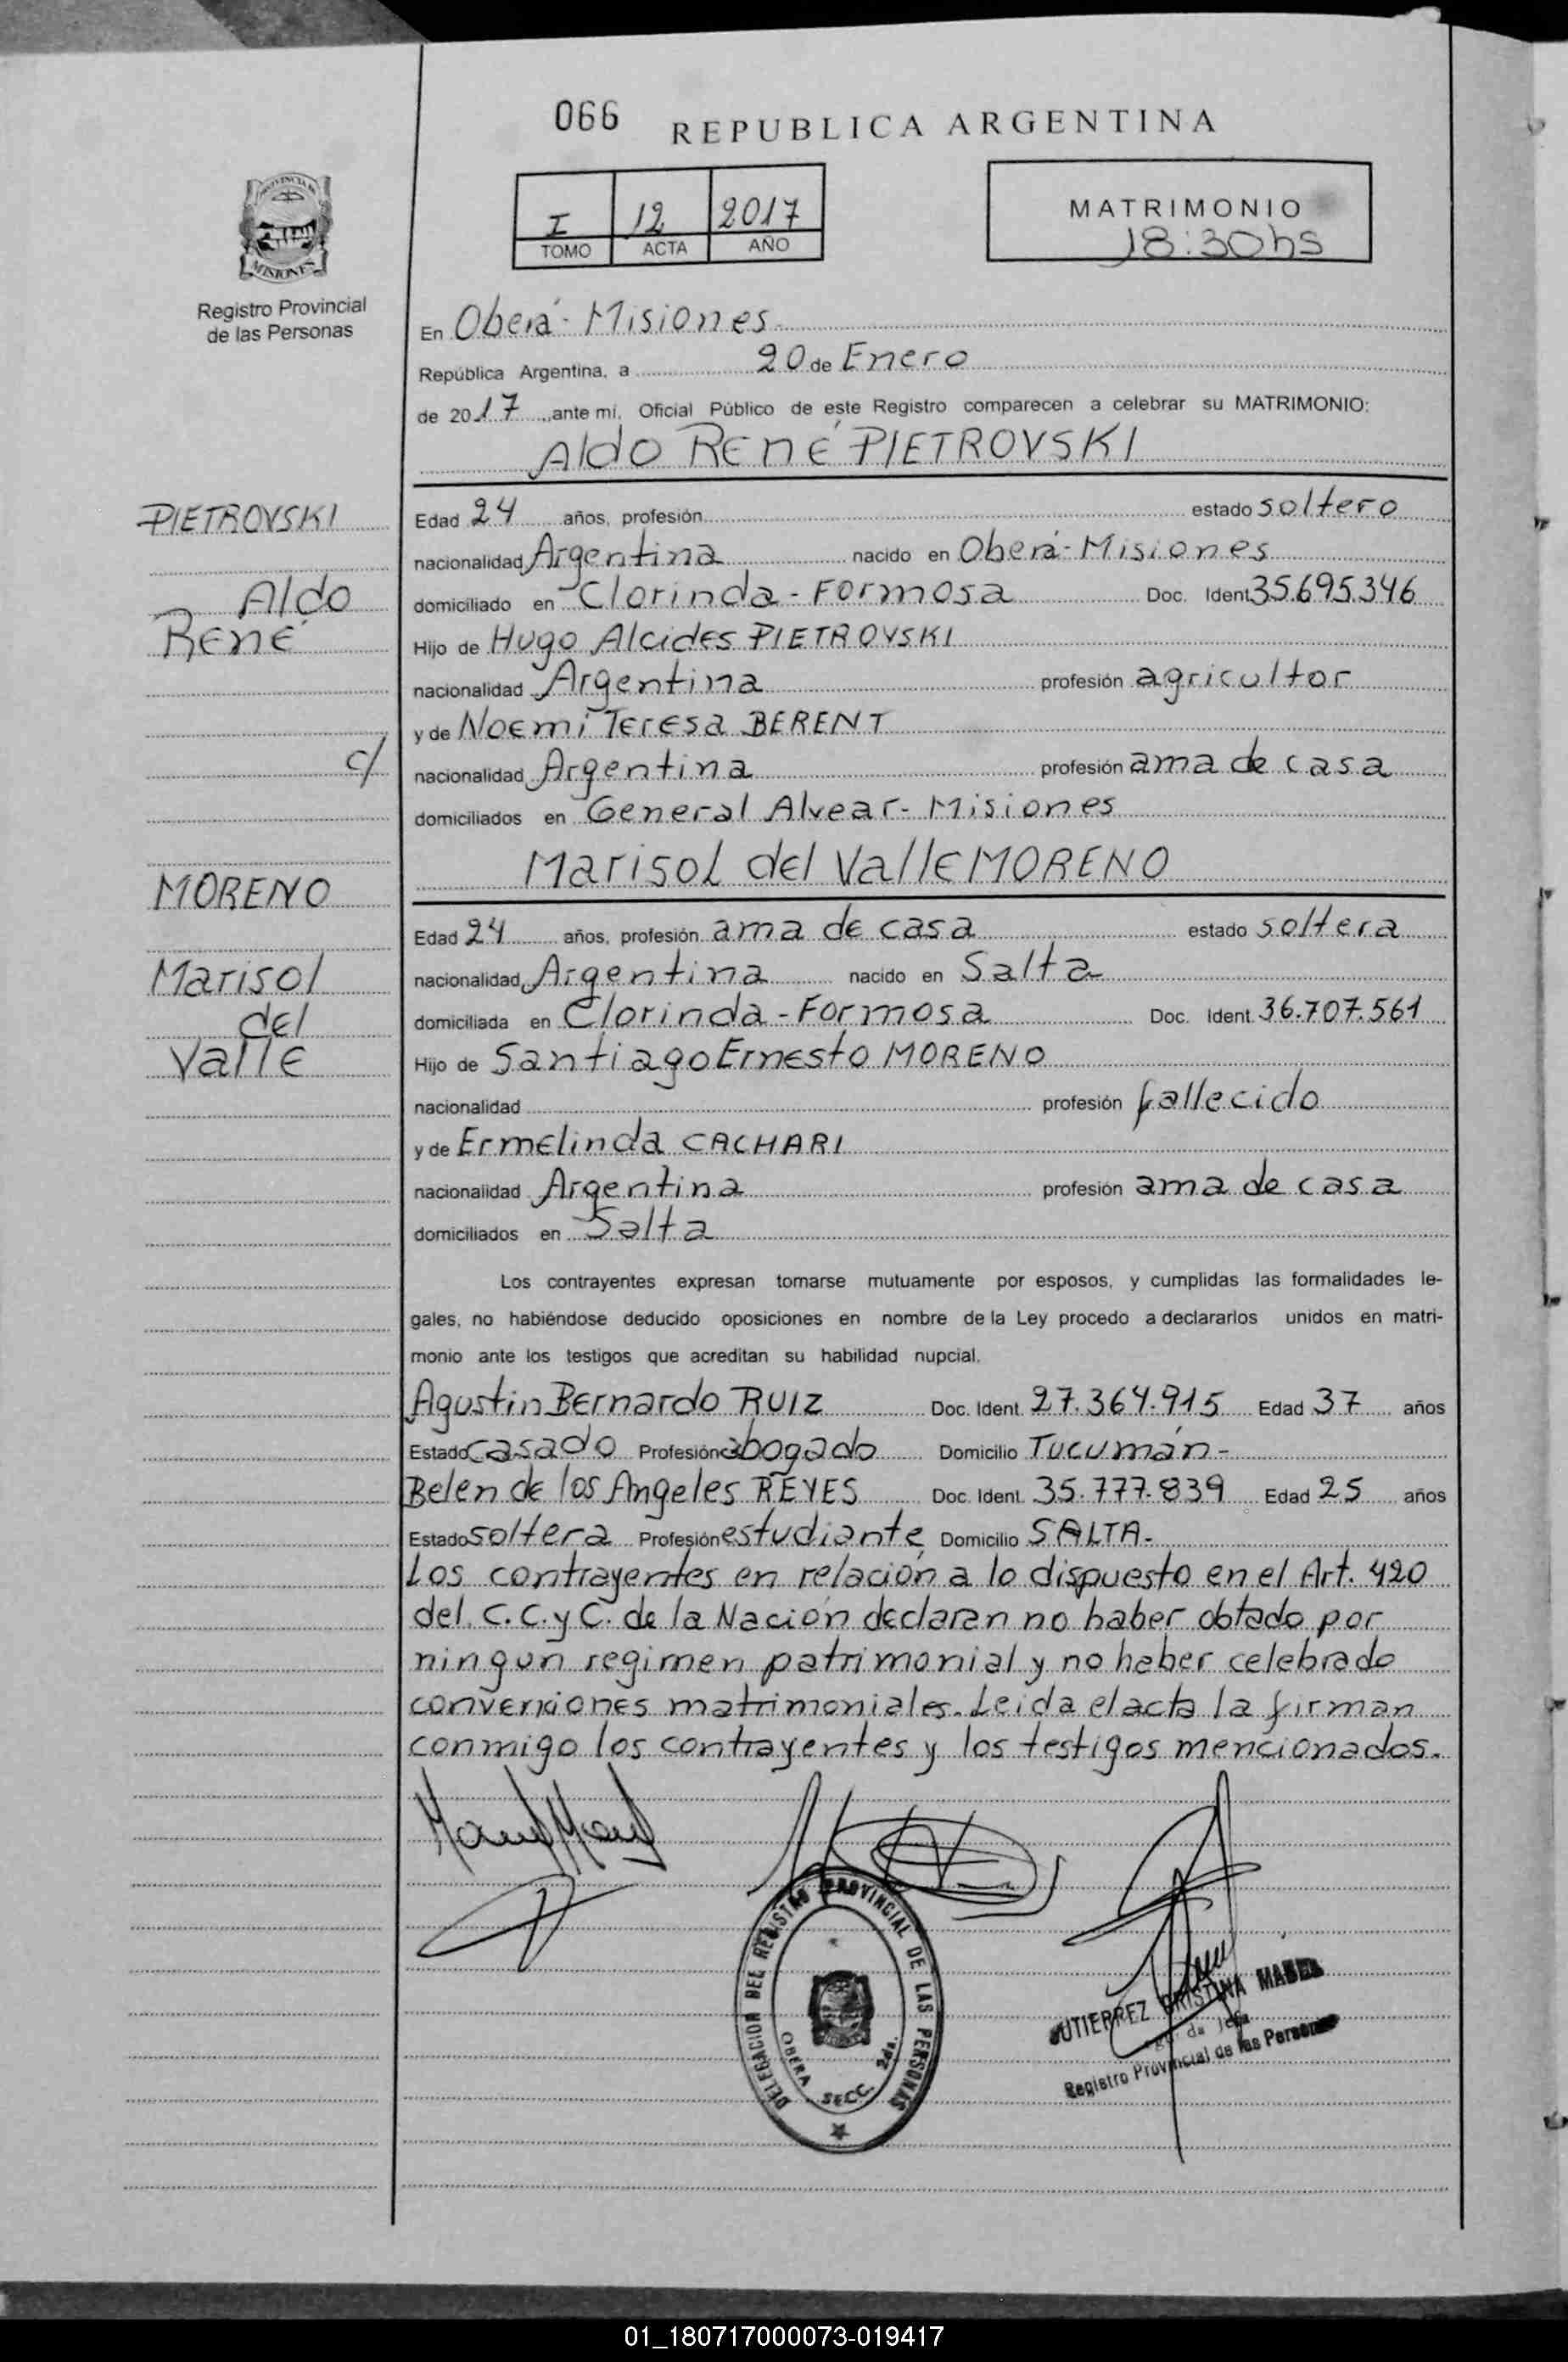 066 REPUBLICA ARGENTINA
I 12 2017
TOMO ACTA AÑO
MATRIMONIO
18:30hs
PROVINCIA DE
MISIONES
Registro Provincial
de las Personas
En Oberá - Misiones
República Argentina, a 20 de Enero
de 2017, ante mí, Oficial Público de este Registro comparecen a celebrar su MATRIMONIO:
Aldo René PIETROVSKI
PIETROVSKI
Aldo
René
c/
MORENO
Marisol
del
Valle
Edad 24 años, profesión estado soltero
nacionalidad Argentina nacido en Oberá - Misiones
domiciliado en Clorinda - Formosa Doc. Ident. 35.695.346
Hijo de Hugo Alcides PIETROVSKI
nacionalidad Argentina profesión agricultor
y de Noemí Teresa BERENT
nacionalidad Argentina profesión ama de casa
domiciliados en General Alvear - Misiones
Marisol del Valle MORENO
Edad 24 años, profesión ama de casa estado soltera
nacionalidad Argentina nacido en Salta
domiciliada en Clorinda - Formosa Doc. Ident. 36.707.561
Hijo de Santiago Ernesto MORENO
nacionalidad profesión fallecido
y de Ermelinda CACHARI
nacionalidad Argentina profesión ama de casa
domiciliados en Salta
Los contrayentes expresan tomarse mutuamente por esposos, y cumplidas las formalidades le-
gales, no habiéndose deducido oposiciones en nombre de la Ley procedo a declararlos unidos en matri-
monio ante los testigos que acreditan su habilidad nupcial.
Agustin Bernardo RUIZ Doc. Ident. 27.364.915 Edad 37 años
Estado casado Profesión abogado Domicilio Tucumán -
Belen de los Angeles REYES Doc. Ident. 35.777.839 Edad 25 años
Estado soltera Profesión estudiante Domicilio SALTA.
Los contrayentes en relación a lo dispuesto en el Art. 420
del C.C.y C. de la Nación declaran no haber obtado por
ningun regimen patrimonial y no haber celebrado
convenciones matrimoniales. Leida el acta la firman
conmigo los contrayentes y los testigos mencionados.
DELEGACION DEL REGISTRO PROVINCIAL DE LAS PERSONAS
OBERA SECC. 2da.
GUTIERREZ CRISTINA MABEL
Registro Provincial de las Personas
01_180717000073-019417